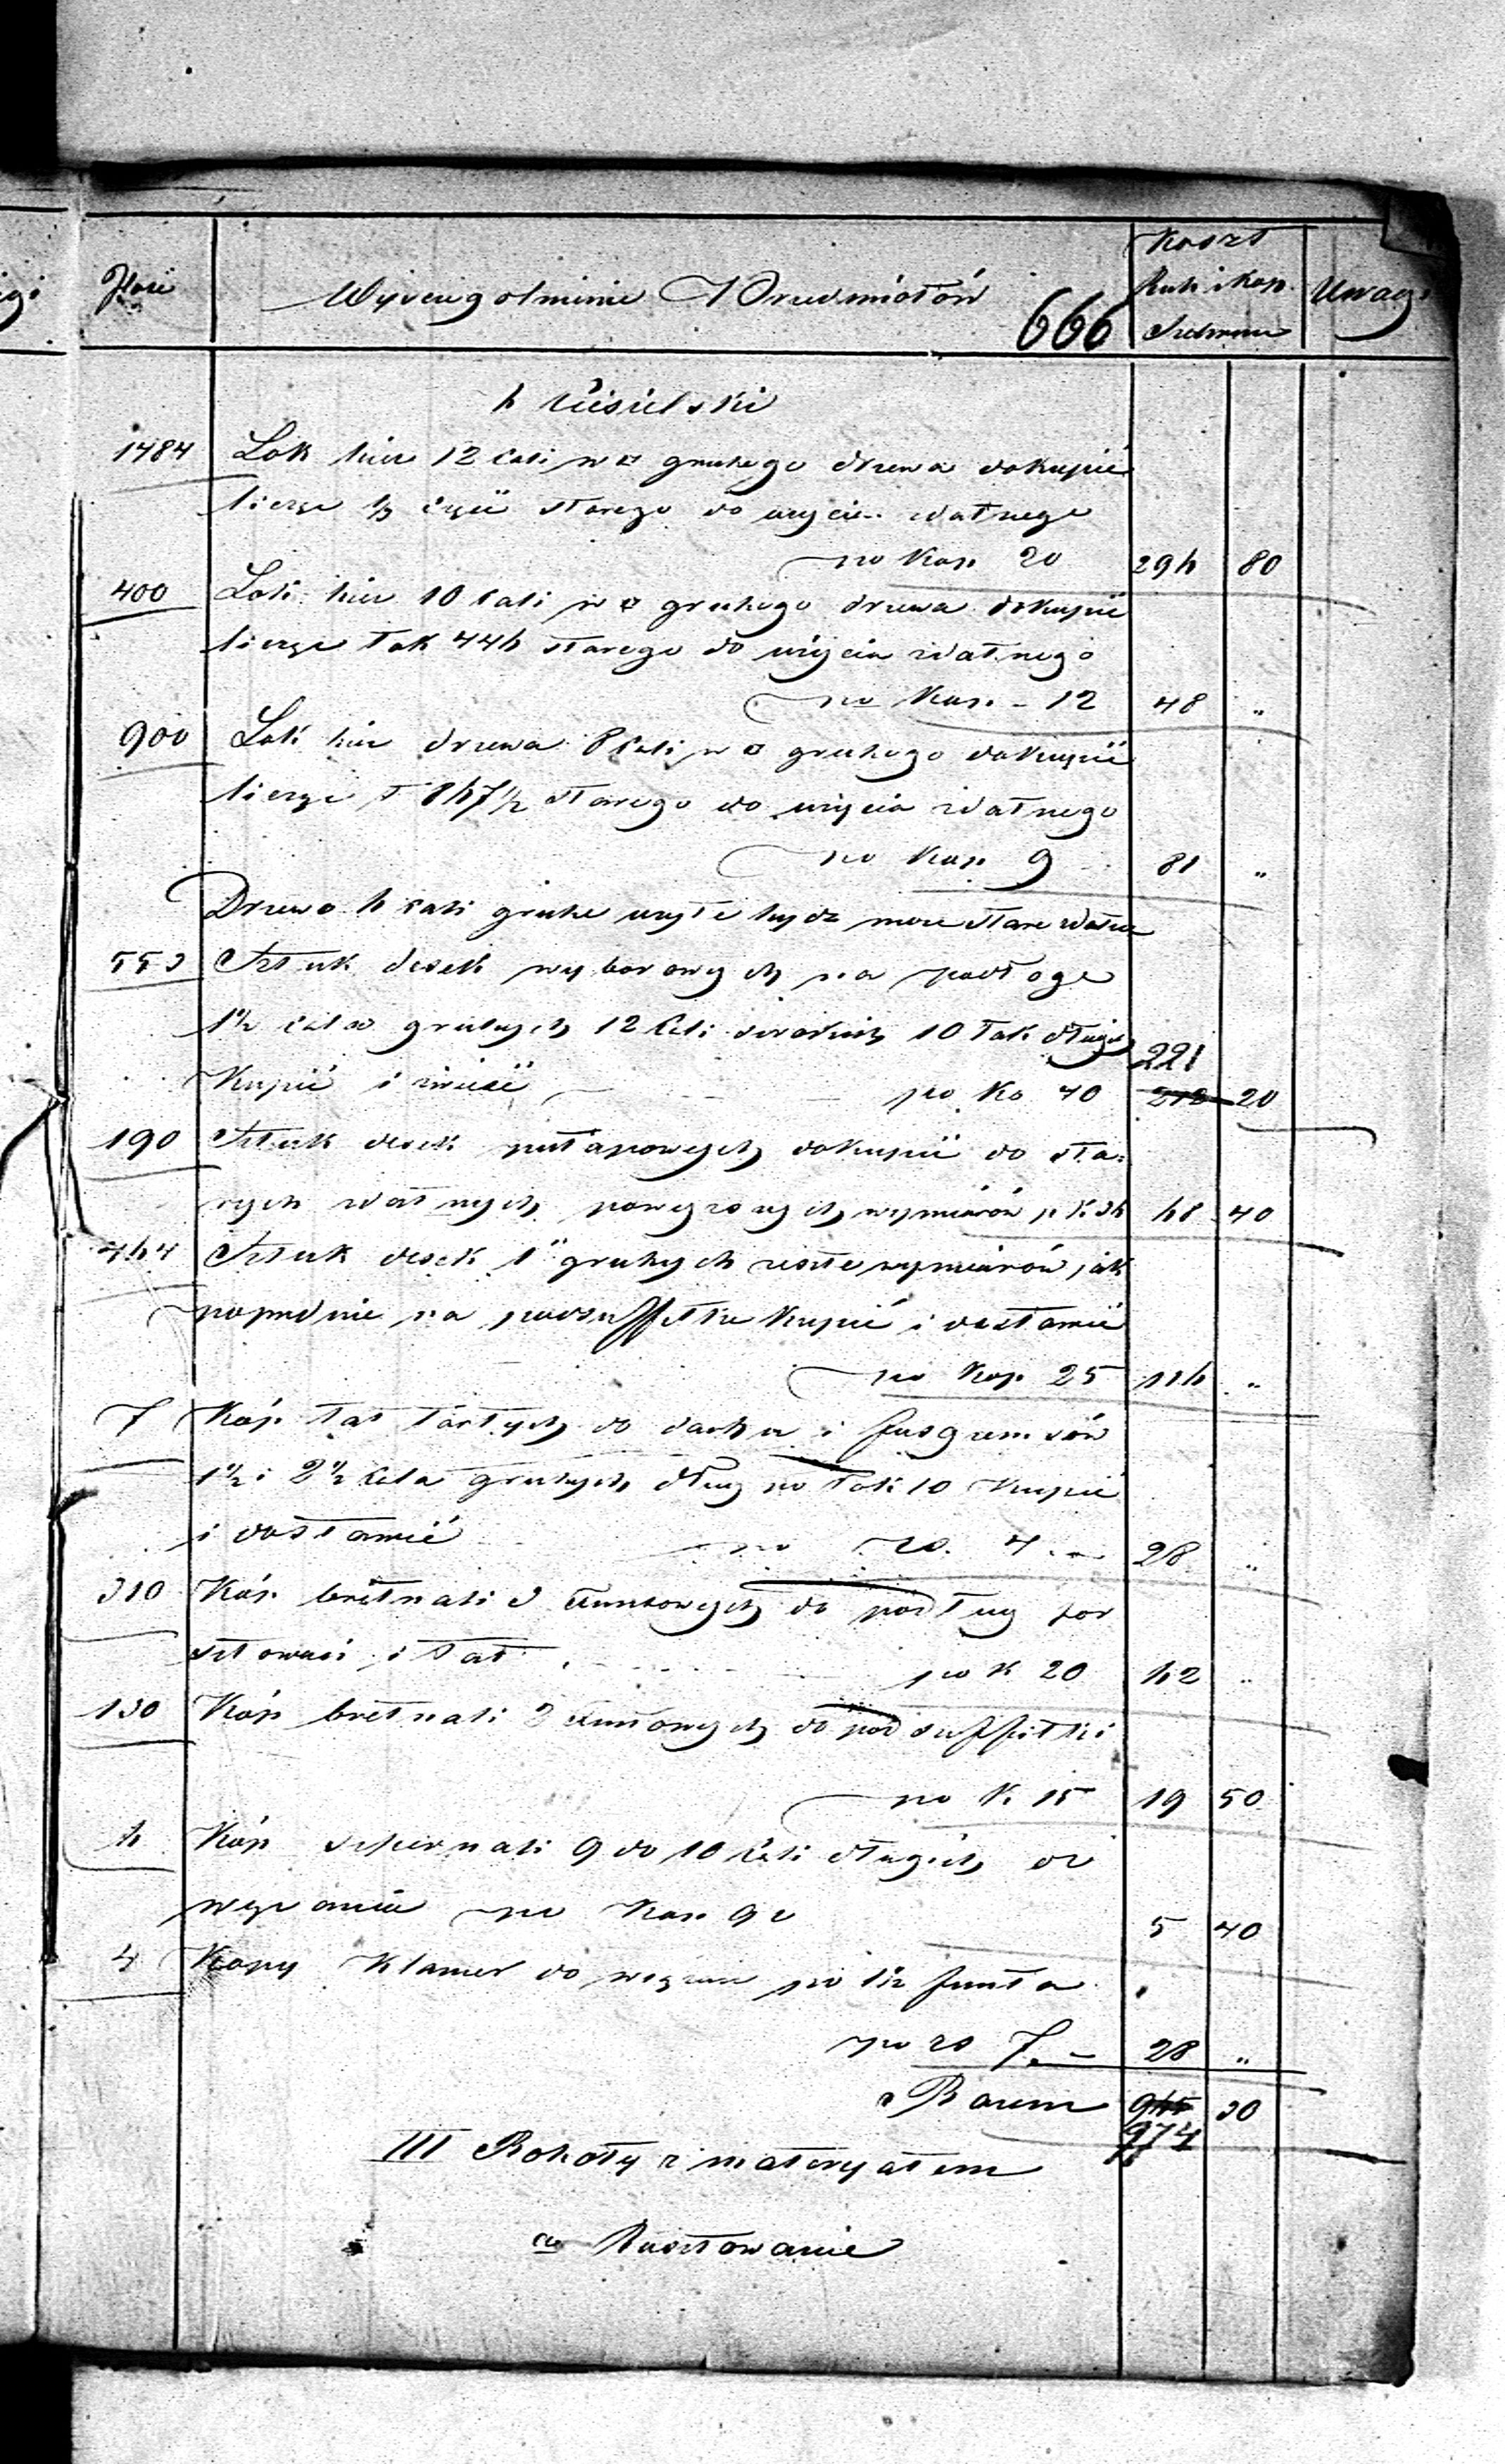 Ilość
Wyszczególnienie Przedmiotów
666
Koszt
Rub i Kop.
Srebrem
Uwagi
b Ciesielski
1484 Łok bież 12 cali w □ grubego drzewa dokupić
licząc ⅓ częś starego do użycia zdatnego
po Kop. 20 296 80
400 Łoki bież 10 cali w □ grubego drzewa dokupić
licząc łok 446 starego do użycia zdatnego
po Kop. - 12 48 "
900 Łok bież drzewa 8 cali w □ grubego dokupić
licząc ł 167½ starego do użycia zdatnego
po Kop 9 81 "
Drzewo 6 cali grube użyte być może stare zdatne
553 Sztuk desek wyborowych na podłogę
1½ cala grubych 12 cali szerokich 10 łok długich 221
Kupić i zwieść po Ko 40 212 20
190 Sztuk desek pułapowych dokupić do sta-
rych zdatnych powyższych wymiarów p K 36 68 40
464 Sztuk desek 1" grubych reszte wymiarów jak
poprzednie na podsuffitke Kupić i dostawić
po Kop 25 116 "
7 Kóp łat tartych do dachu i fusgzemsów
1½ i 2½ cala grubych dług po łok 10 Kupić
i dostawić po rs. 4. - 28 "
310 Kóp bretnali 3 calowych do podług for
sztowań i łat po K 20 62 "
130 Kóp bretnali 2 calowych do podsuffitki
po K. 15 19 50
6 Kóp szpernali 9 do 10 cali długich do
wiązania po Kop. 90 5 40
4 Kopy Klamer do wiązań po 1½ funta
po rs 7. - 28 "
Razem 945 30
974
III Roboty z materyałem
a Rusztowanie